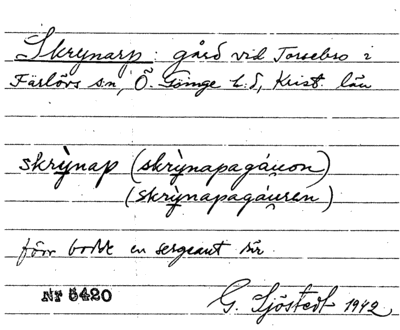 Skrynarp: gård vid Torsebro i
Färlövs sn, Ö. Göinge h:d, Krist. län
skrỳnap (skrỳnapagáuon)
(skrỳnapagáuren)
förr bodde en sergeant där.
Nr 5420
G. Sjöstedt 1942,